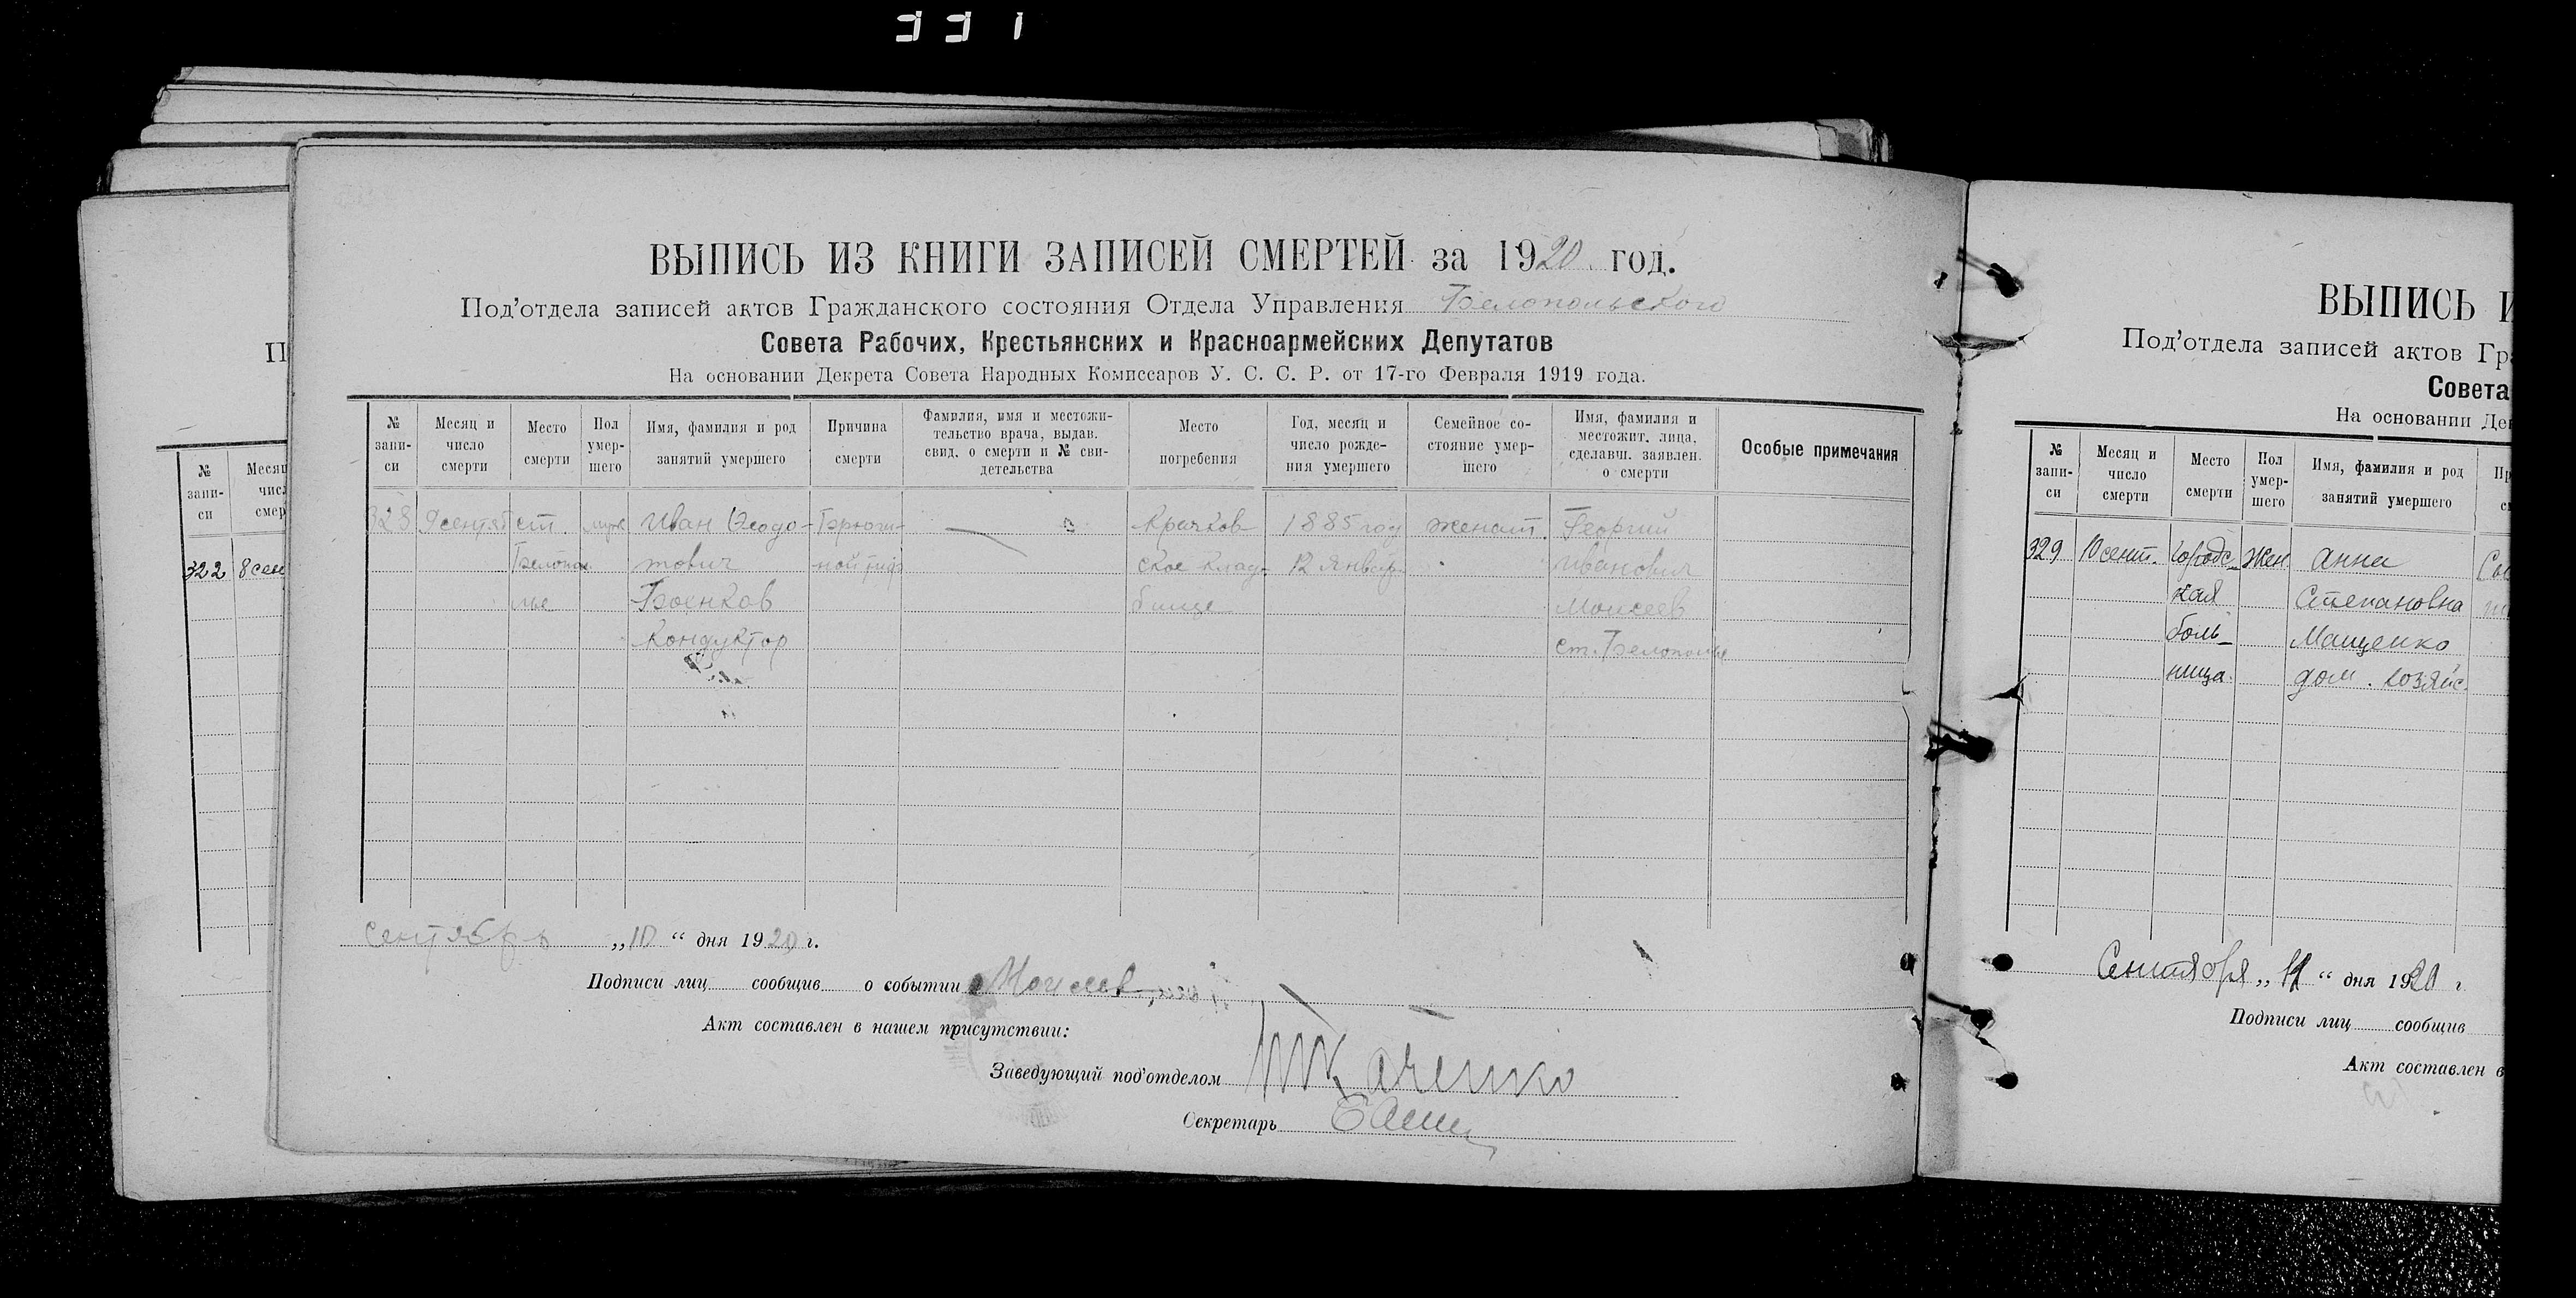 331
ВЫПИСЬ ИЗ КНИГИ ЗАПИСЕЙ СМЕРТЕЙ за 1920 год.
Под'отдела записей актов Гражданского состояния Отдела Управления Белопольского
Совета Рабочих, Крестьянских и Красноармейских Депутатов
На основании Декрета Совета Народных Комиссаров У. С. С. Р. от 17-го Февраля 1919 года.
№ зани- си
Месяц и число смерти
Место смерти
Пол умер- шего
Имя, фамилия и род занятий умершего
Причина смерти
Фамилия, имя и местожи- тельство врача, выдав. свид. о смерти и № сви- детельства
Место погребения
Год, месяц и число рожде- ния умершего
Семейное со- стояние умер- шего
Имя, фамилия и местожит. лица, сделавш. заявлен. о смерти
Особые примечания
328 9 сентяб ст. муж Иван Брюш- Крачков- 1885 год женат. Георгий
Белопо- ной тиф ское клад- 12 Январ. Иванович
лье Боенков бище Моисеев
Кондуктор ст. Белополье
сентябрь „10 “ дня 1920 г.
Подписи лиц сообщив о событии Моисеев
Акт составлен в нашем присутствии:
Заведующий под'отделом Ткаченко
Секретарь
П
№ зани- си
Месяц
числ
смер
322 8 сен
ВЫПИСЬ И
Под'отдела записей актов Гра
Совета
На основании Де
№ зани- си
Месяц и число смерти
Место смерти
Пол умер- шего
Имя, фамилия и род занятий умершего
329 10 сент. Городс- Жен. Анна
кая Степановна
боль- Мащенко
ница. дом. хозяйс.
Сентября „ 11 “ дня 1920 г
Подписи лиц сообщив
Акт составлен в